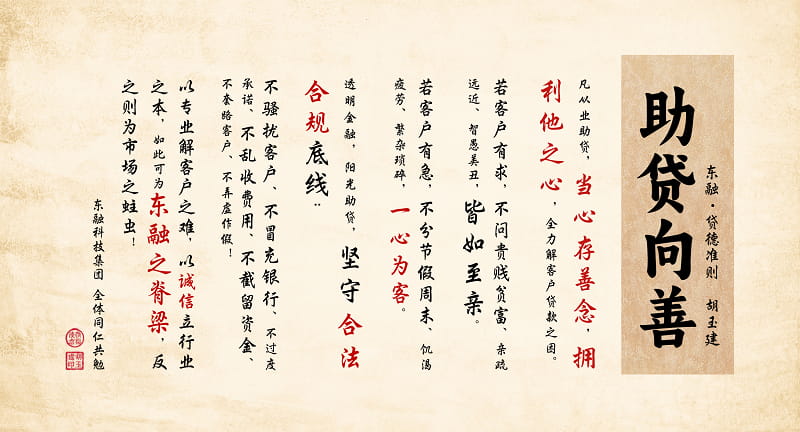 助贷向善
东融·贷德准则 胡玉建
凡从业助贷,当心存善念,拥
利他之心,全力解客户贷款之困。
若客户有求,不问贵贱贫富、亲疏
远近、智愚美丑,皆如至亲。
若客户有急,不分节假周末、饥渴
疲劳、繁杂琐碎,一心为客。
透明金融,阳光助贷,坚守合法
合规底线:
不骚扰客户、不冒充银行、不过度
承诺、不乱收费用、不截留资金、
不套路客户、不弄虚作假!
以专业解客户之难,以诚信立行业
之本,如此可为东融之脊梁,反
之则为市场之蛀虫!
东融科技集团 全体同仁共勉